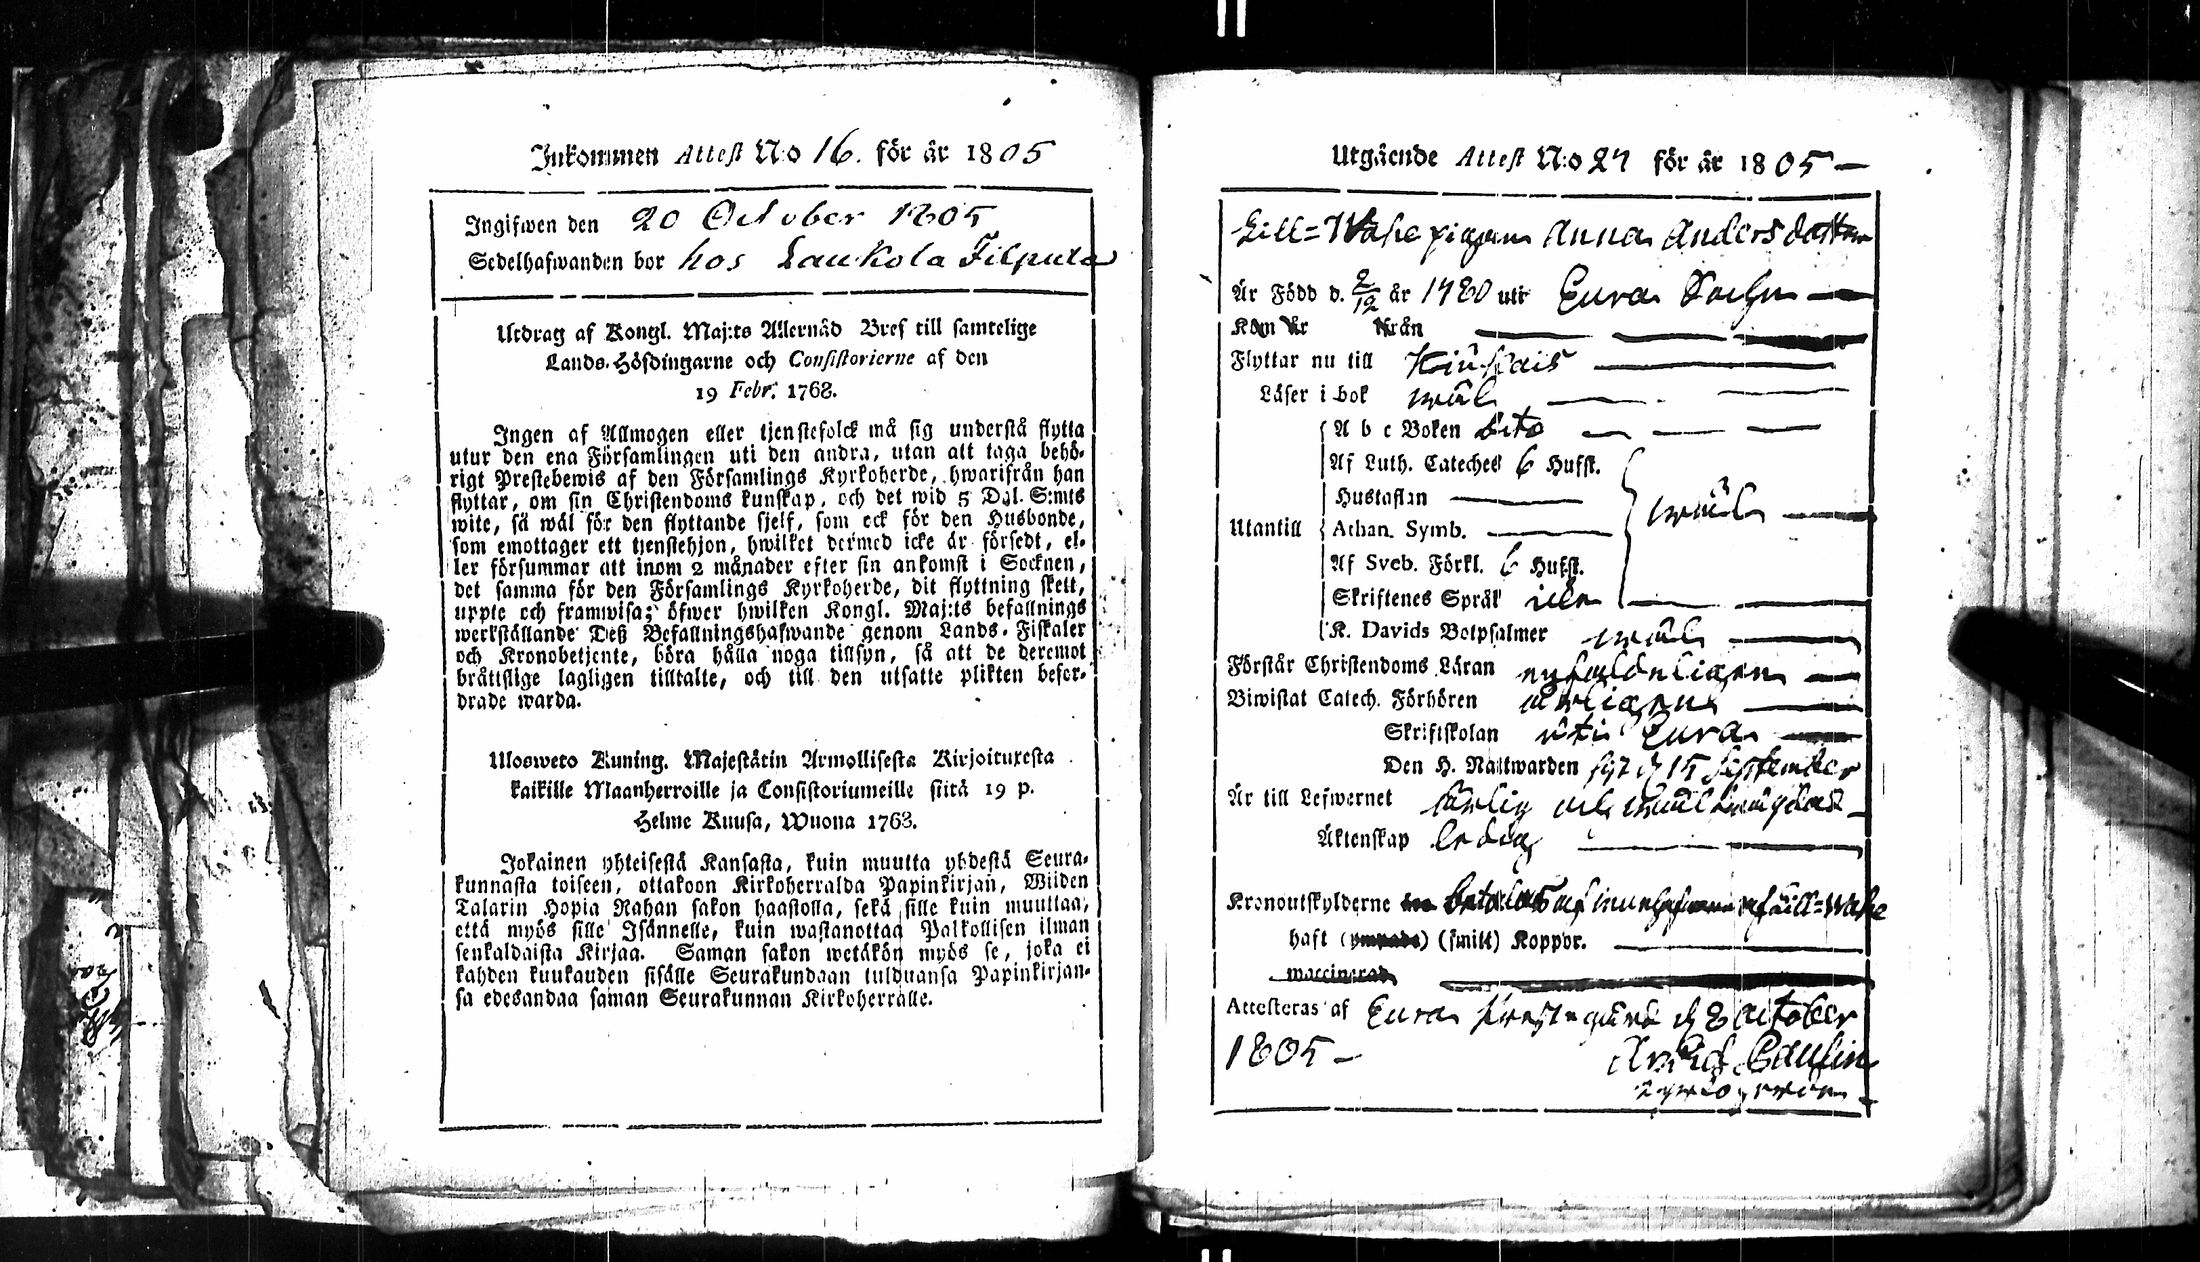 Inkommen Attest N:o 16. för år 1805
Ingifwen den 20 October 1805
Sedelhafwanden bor hos Laukola Filpula
Utdrag af Kongl. Maj:ts Allernåd Bref till samtelige
Lands-Höfdingarne och Consistorierne af den
19 Febr. 1763.
Ingen af Allmogen eller tjenstefolck må sig understå flytta
utur den ena Församlingen uti den andra, utan att taga behö-
rigt Prestebewis af den Församlings Kyrkoherde, hwarifrån han
flyttar, om sin Christendoms kunskap, och det wid 5 Dal. S:mts
wite, så wäl för den flyttande sjelf, som ock för den Husbonde,
som emottager ett tjenstehjon, hwilket dermed icke är försedt, el-
ler försummar att inom 2 månader efter sin ankomst i Socknen,
det samma för den Församlings Kyrkoherde, dit flyttning skett,
uppte och framwisa; öfwer hwilken Kongl. Maj:ts befallnings
werkställande Deß Befallningshafwande genom Lands-Fiskaler
och Kronobetjente, böra hålla noga tillsyn, så att de deremot
bråttslige lagligen tilltalte, och till den utsatte plikten befor-
drade warda.
Ulosweto Kuning. Majestätin Armollisesta Kirjoituxesta
kaikille Maanherroille ja Consistoriumeille siitä 19 p.
Helme Kuusa, Wuona 1763.
Jokainen yhteisestä Kansasta, kuin muutta yhdestä Seura-
kunnasta toiseen, ottakoon Kirkoherralda Papinkirjan, Wiiden
Talarin Hopia Rahan sakon haastolla, sekä sille kuin muuttaa,
että myös sille Isännelle, kuin wastanottaa Palkollisen ilman
senkaldaista Kirjaa. Saman sakon wetäkön myös se, joka ei
kahden kuukauden sisälle Seurakundaan tulduansa Papinkirjan-
sa edesandaa saman Seurakunnan Kirkoherralle.
Utgående Attest N:o 27 för år 1805 –
pigan Anna Andersdotter
Är Född d. 2/12 år 1780 uti Eura Sochn
Kom År Från
Flyttar nu till
Läser i bok wäl
A b c Boken dito
Af Luth. Cateches 6 Hufst.
Hustaflan
wäl
Utantill Athan. Symb.
Af Sveb. Förkl. 6 Hufst.
Skriftenes Språk
K. Davids Botpsalmer wäl
Förstår Christendoms Läran enfaldeligen
Biwistat Catech. Förhören årligen
Skriftskolan uti Eura
Den H. Nattwarden sist d 15 September
Är till Lefwernet ärlig och
Äktenskap ledig
Kronoutskylderne betalas af
haft (ympade) (smitt) Koppor.
waccinerad
Attesteras af Eura Prestegård d 8 October
1805 –